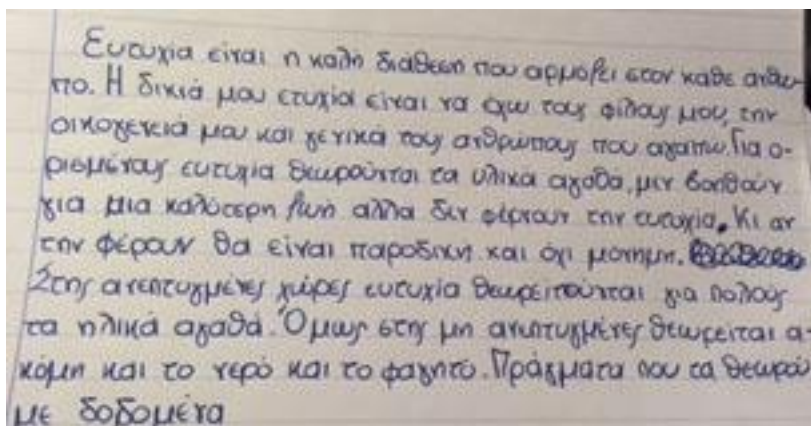 Ευτυχία είναι η καλή διάθεση που αρμόζει στον κάθε άνθω-
πο. Η δικιά μου ετυχία είναι να έχω τους φίλους μου, την
οικογένειά μου και γενικά τους ανθρώπους που αγαπώ. Για ο-
ρισμένους ευτυχία θεωρούνται τα υλικά αγαθά, μεν βοηθούν
για μια καλύτερη ζωή αλλα δεν φέρνουν την ευτυχία. Κι αν
την φέρουν θα είναι παροδικη και όχι μόνιμη.
Στης ανεπτυγμένες χώρες ευτυχία θεωρειτούνται για πολούς
τα ηλικά αγαθά. Όμως στης μη ανεπτυγμένες θεωρείται α-
κόμη και το νερό και το φαγητό. Πράγματα που τα θεωρού
με δοδομένα